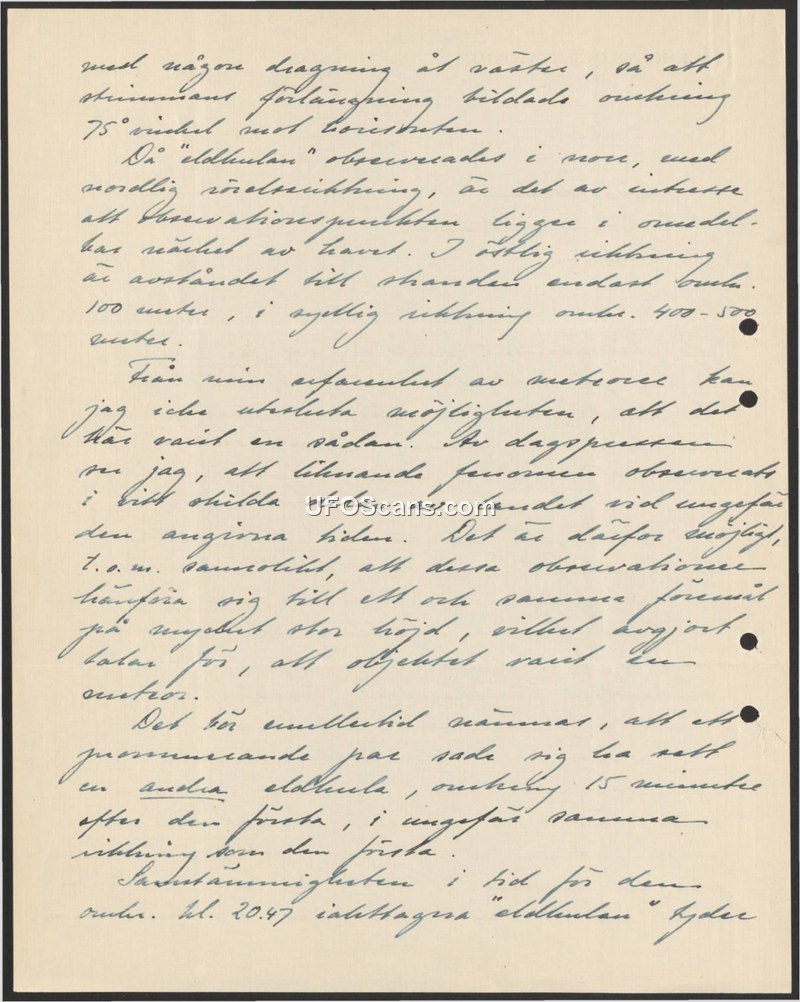 med någon dragning åt väster, så att
strimmans förlängning bildade omkring
75° vinkel mot horisonten.
Då "eldkulan" observerades i norr, med
nordlig rörelseriktning, är det av intresse
att observationspunkten ligger i omedel-
bar närhet av havet. I östlig riktning
är avståndet till stranden endast omkr.
100 meter, i sydlig riktning omkr. 400-500
meter.
Från min erfarenhet av meteorer kan
jag icke utesluta möjligheten, att det
här varit en sådan. Av dagspressen
ser jag, att liknande fenomen observerats
i vitt skilda delar av landet vid ungefär
den angivna tiden. Det är därför möjligt,
t.o.m. sannolikt, att dessa observationer
hänföra sig till ett och samma föremål
på mycket stor höjd, vilket avgjort
talar för, att objektet varit en
meteor.
Det bör emellertid nämnas, att ett
promenerande par sade sig ha sett
en andra eldkula, omkring 15 minuter
efter den första, i ungefär samma
riktning som den första.
Samstämmigheten i tid för den
omkr. kl. 20.47 iakttagna "eldkulan" tyder
UFOScans.com